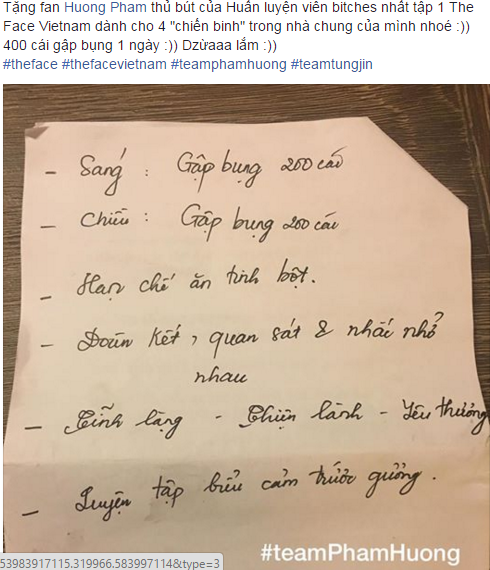 Tặng fan Huong Pham thủ bút của Huấn luyện viên bitches nhất tập 1 The
Face Vietnam dành cho 4 "chiến binh" trong nhà chung của mình nhoé :))
400 cái gập bụng 1 ngày :)) Dzừaaa lắm :))
#theface #thefacevietnam #teamphamhuong #teamtungjin
- Sáng : Gập bụng 200 cái
- Chiều : Gập bụng 200 cái
- Hạn chế ăn tinh bột.
- Đoàn kết, quan sát & nhắc nhở
nhau
- Tĩnh lặng - Thiện lành - Yêu thương
- Luyện tập biểu cảm trước gương.
53983917115.319966.583997114&type=3
#teamPhamHuong